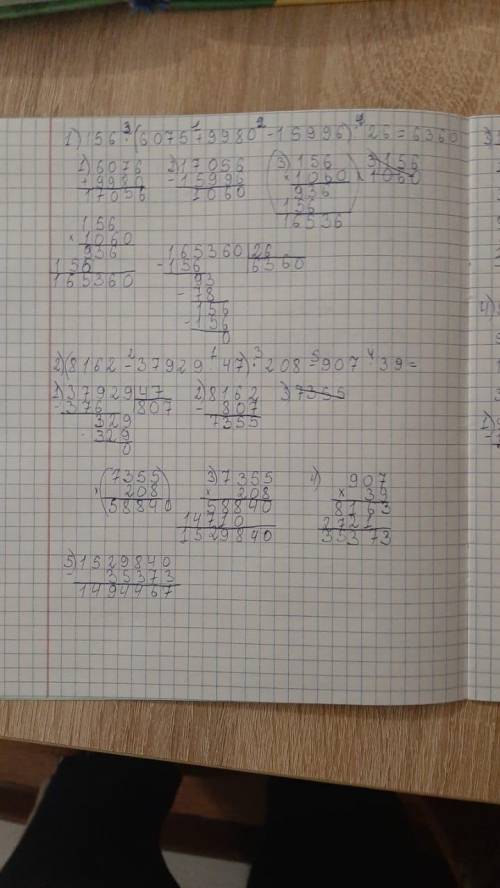 1) 156 · (6075 + 9980 - 15996) : 26 = 6360
3 1 2 4
1) 6076 2) 17056 3) 156 3) 156
+ 9980 - 15996 × 1060 × 1060
17056 1060 936
156
16536
156
× 1060
936 165360 | 26
156 - 156 6360
165360 93
- 78
156
- 156
0
2) (8162 - 37929 : 47) · 208 - 907 · 39 =
2 1 3 5 4
1) 37929 | 47 2) 8162 3) 7355
- 376 807 - 807
329 7355
- 329
0
7355 3) 7355 4) 907
× 208 × 208 × 39
58840 58840 8163
14710 2721
1529840 35373
5) 1529840
- 35373
1494467